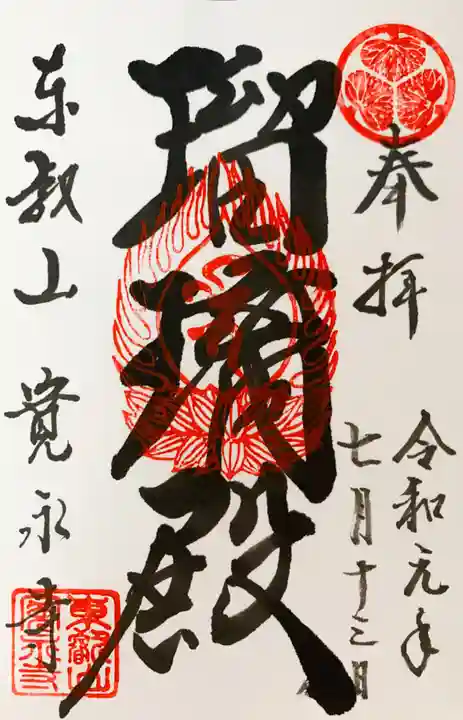 奉拝
令和元年
七月十三日
瑠璃殿
東叡山 寛永寺
東叡山
寛永寺